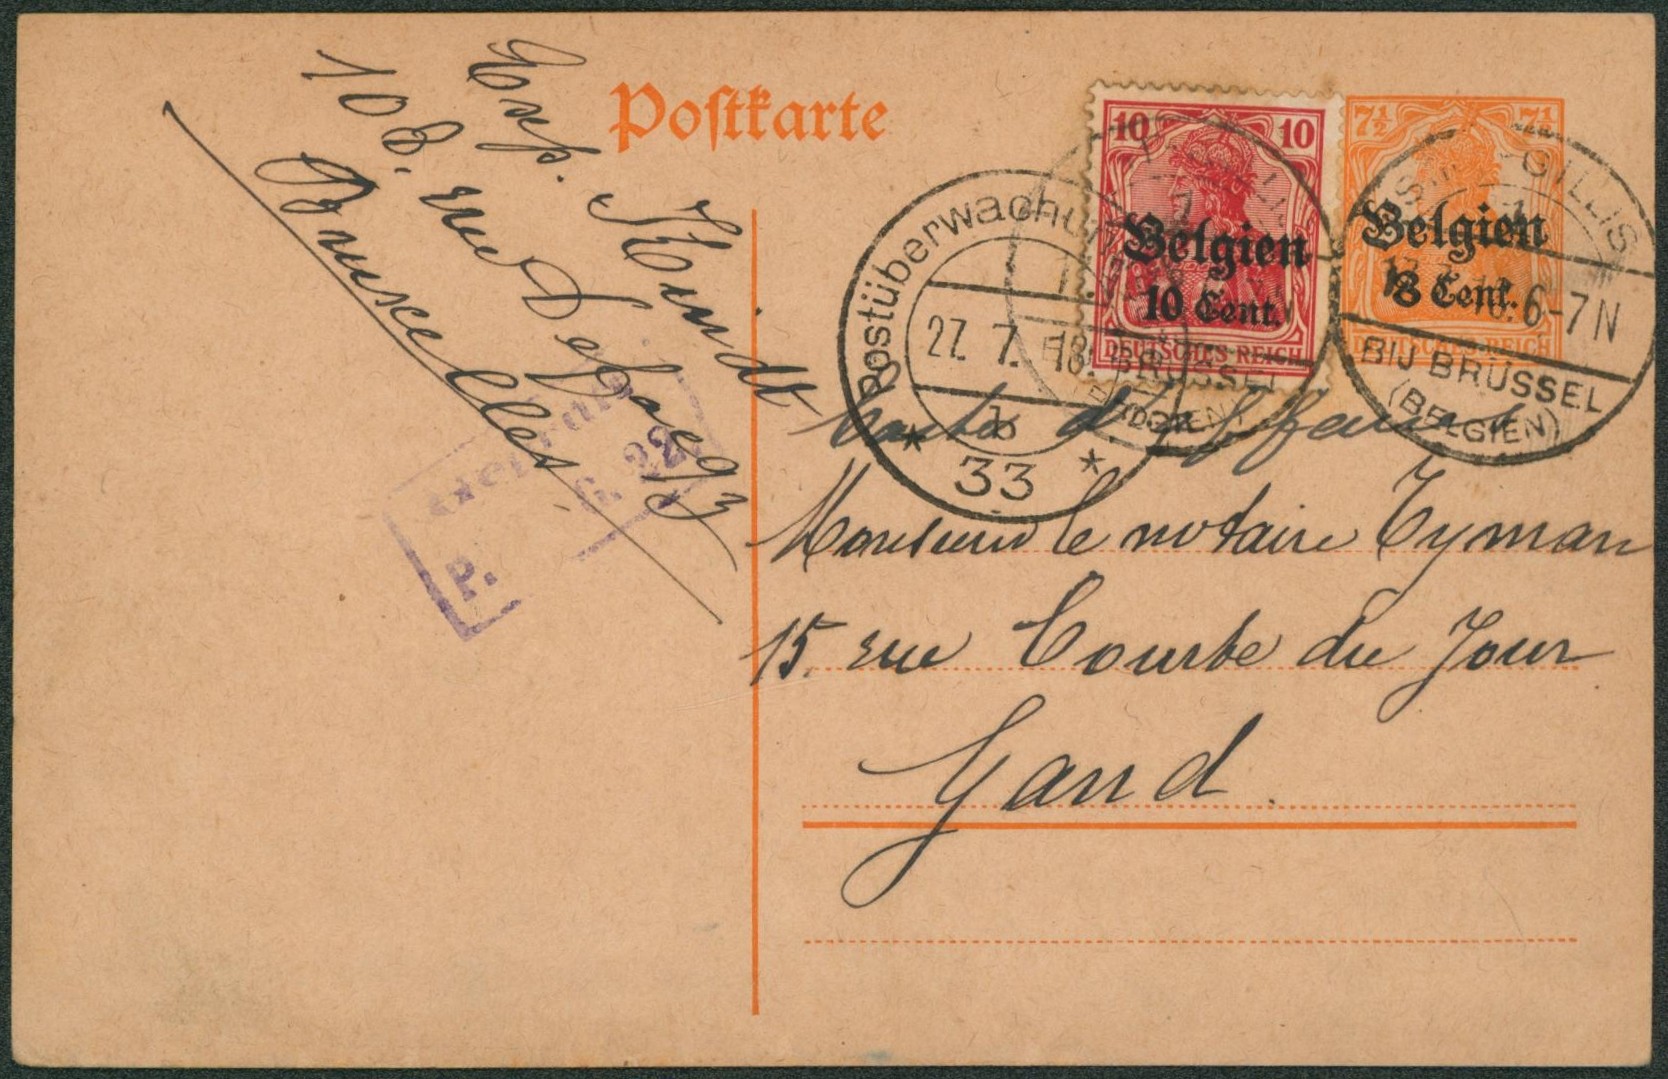 Postkarte
Exp. Kindt
108. rue Defacqz
Bruxelles.
10 10
Belgien
10 Cent.
DEUTSCHES REICH
7½ 7½
Belgien
8 Cent.
DEUTSCHES REICH
Postüberwachung
27. 7. 18.
b
* 33 *
GILLIS
6-7N
BIJ BRÜSSEL
(BELGIEN)
BRÜSSEL
(BELGIEN)
P. G. 22
Carte d'Affaires
Monsieur le notaire Tyman
15. rue Courte du Jour
Gand.